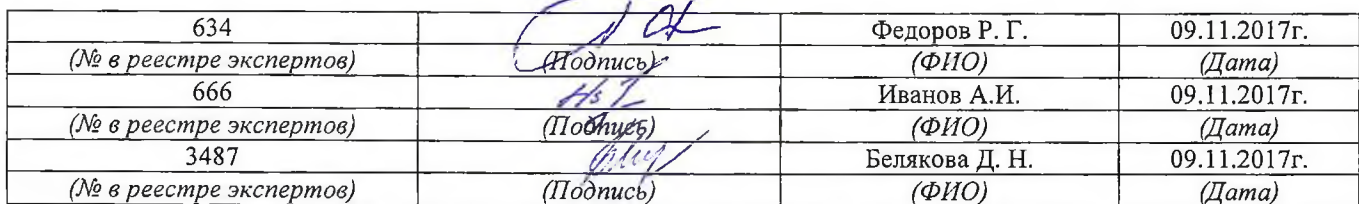 634 Федоров Р. Г. 09.11.2017г.
(№ в реестре экспертов) (Подпись) (ФИО) (Дата)
666 Иванов А.И. 09.11.2017г.
(№ в реестре экспертов) (Подпись) (ФИО) (Дата)
3487 Белякова Д. Н. 09.11.2017г.
(№ в реестре экспертов) (Подпись) (ФИО) (Дата)